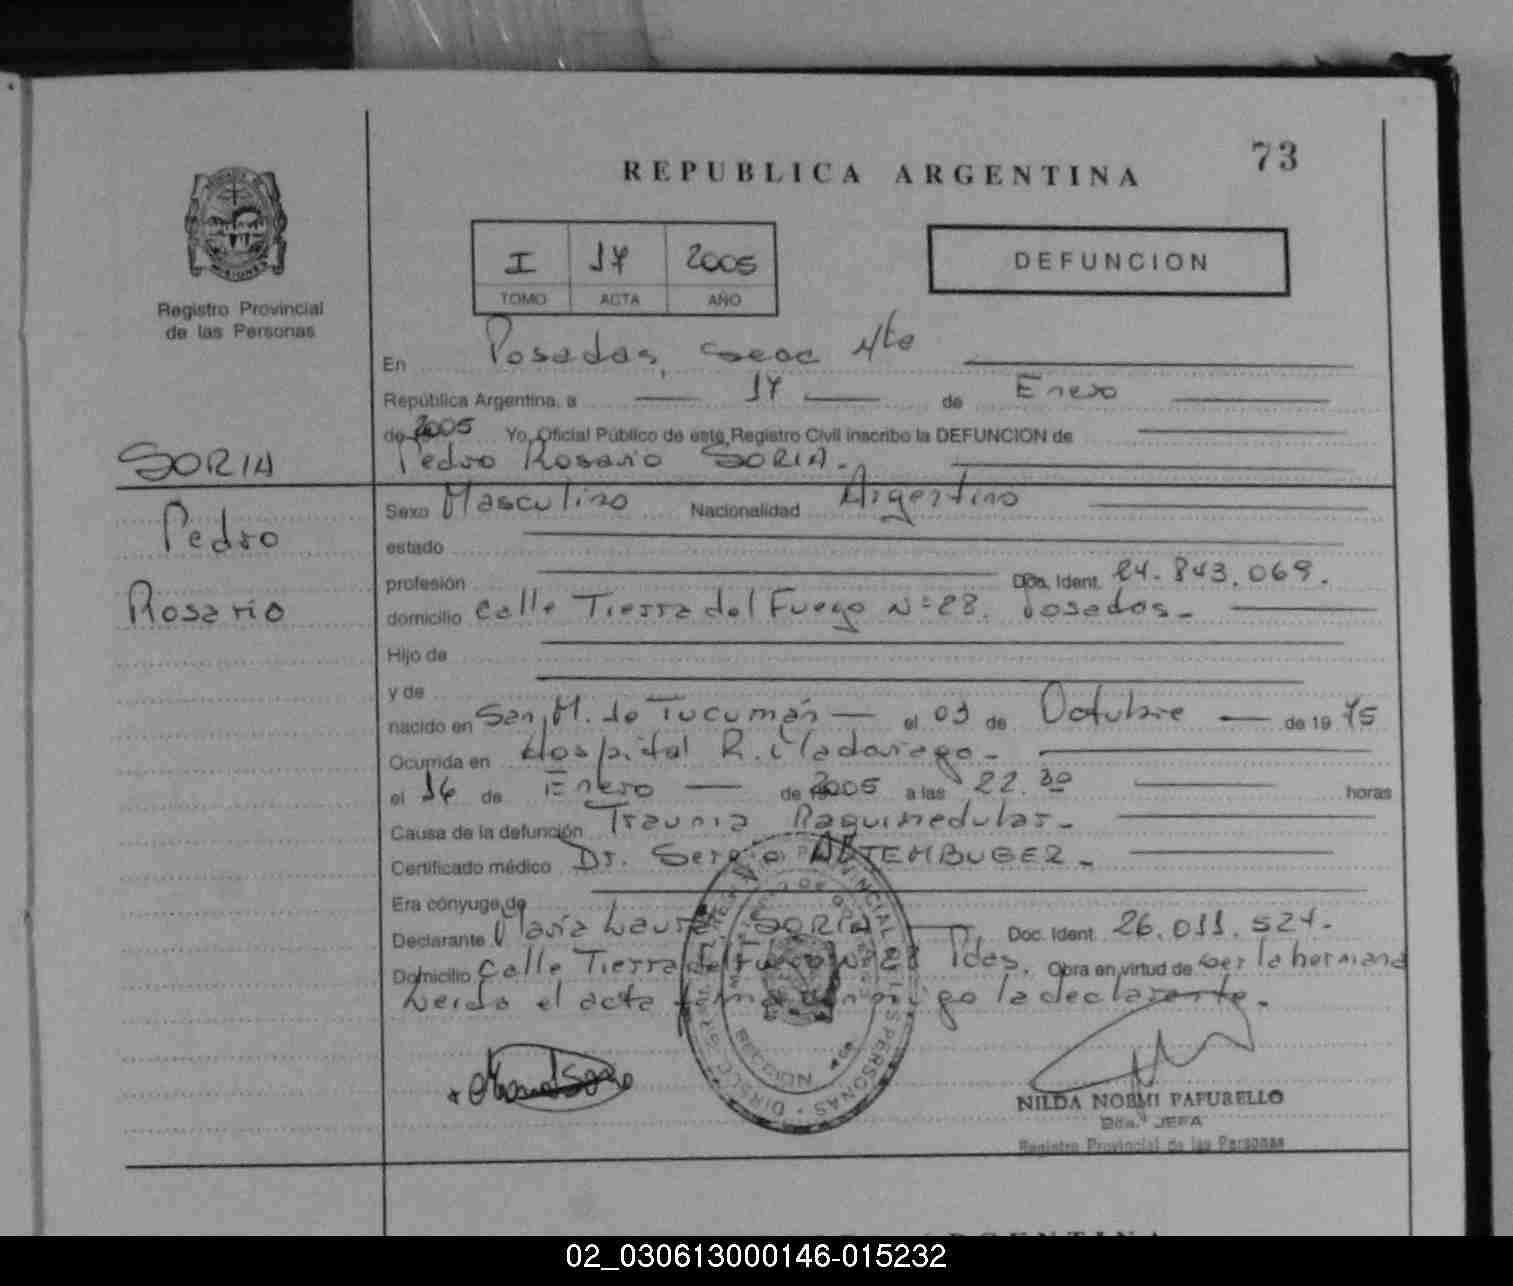 REPUBLICA ARGENTINA
73
Registro Provincial
de las Personas
I 17 2005
TOMO ACTA AÑO
DEFUNCION
En Posadas, Nte
República Argentina, a 17 de Enero
de 2005 Yo, Oficial Público de este Registro Civil inscribo la DEFUNCION de
SORIA
Pedro Rosario SORIA.
Pedro
Rosario
Sexo Masculino Nacionalidad Argentino
estado
profesión Doc. Ident. 24.843.069.
domicilio Calle Tierra del Fuego N=28. Posadas.-
Hijo de
y de
nacido en San M. de Tucumán el 03 de Octubre de 19 75
Ocurrida en Hospital R. Madariaga.-
el 16 de Enero de 2005 a las 22.30 horas
Causa de la defunción Trauma Raquimedular.-
Certificado médico Dr. Sergio
Era cónyuge de
Declarante María Laura SORIA Doc. Ident. 26.011.527.-
Domicilio Calle Tierra del Fuego Nº 28 Pdas. Obra en virtud de ser la hermana
Leída el acta firma conmigo la declarante.-
NILDA NOEMI PAPURELLO
JEFA
Registro Provincial de las Personas
REPUBLICA ARGENTINA
02_030613000146-015232